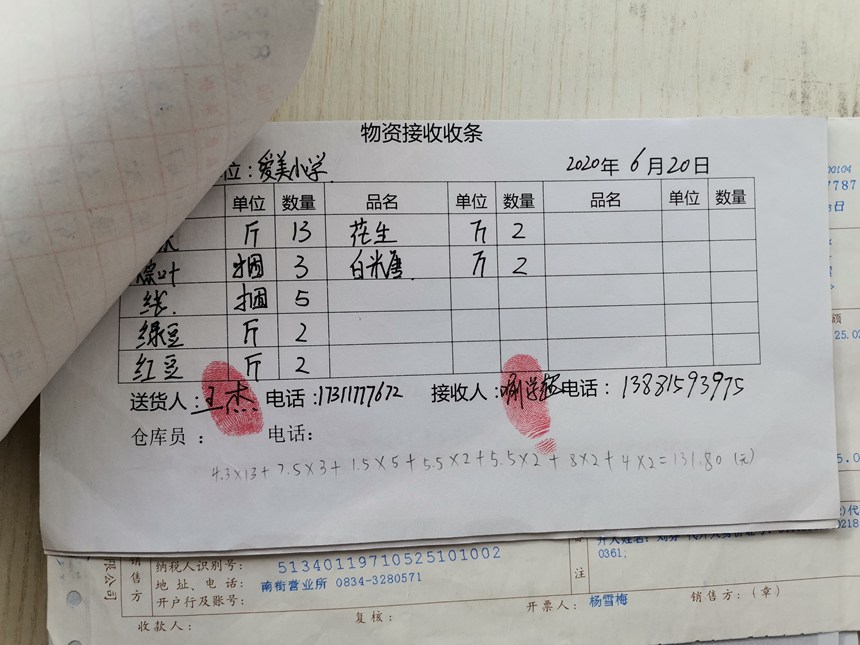 物资接收收条
位：爱美小学 2020年 6月20日
单位 数量 品名 单位 数量 品名 单位 数量
斤 13 花生 斤 2
粽叶 捆 3 白米唐 斤 2
线 捆 5
绿豆 斤 2
红豆 斤 2
送货人：王杰 电话：17311777672 接收人： 电话：13881593975
仓库员： 电话：
4.3×13+7.5×3+1.5×5+5.5×2+5.5×2+8×2+4×2=131.80(元)
00104
7787
日
额
25.02
5.0
代
0218
0361;
限公司
销售方
纳税人识别号： 51340119710525101002
地址、电话： 南街营业所 0834-3280571
开户行及账号：
注
收款人： 复核： 开票人： 杨雪梅 销售方：（章）